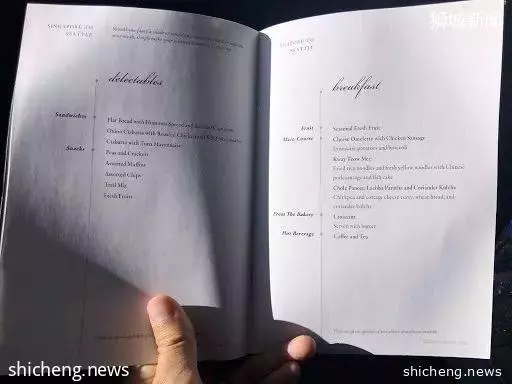 狮城新闻
SINGAPORE TO
SEATTLE
delectables
Sandwiches
Flat Bread with Hummus Spread and
Onion Ciabatta with Roasted Chicken and BBQ Mayonnaise
Ciabatta with Tuna Mayonnaise
Snacks
Peas and Crackers
Assorted Muffins
Assorted Chips
Trail Mix
Fresh Fruits
SINGAPORE TO
SEATTLE
breakfast
Fruit
Seasonal Fresh Fruit
Main Course
Cheese Omelette with Chicken Sausage
Lyonnaise potatoes and broccoli
Kway Teow Mee
Fried rice noodles and fresh yellow noodles with Chinese
pork sausage and fish cake
Chole Paneer, Lachha Paratha and Coriander Kulcha
Chickpea and cottage cheese curry, wheat bread, and
coriander kulcha
From The Bakery
Croissant
Served with butter
Hot Beverage
Coffee and Tea
shicheng.news
shicheng.news